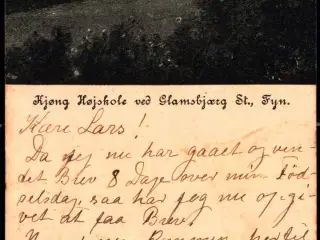 Kjøng Højskole ved Glamsbjærg St., Fyn.
Kære Lars!
Da jeg nu har gaaet og ven-
det Brev 8 Dage over min Fød-
selsdag, saa har jeg nu opgi-
vet at faa Brev.